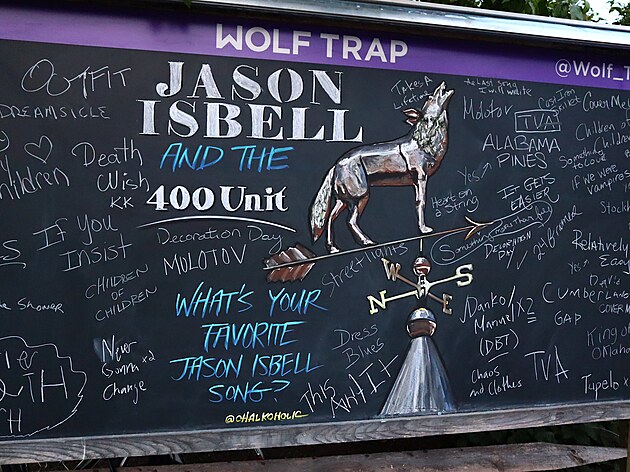 WOLF TRAP
@Wolf_T
JASON
ISBELL
AND THE
400 Unit
WHAT'S YOUR
FAVORITE
JASON ISBELL
SONG?
@CHALKOHOLIC
OUTFIT
DREAMSICLE
Children
Death
Wish
KK
If You
Insist
CHILDREN
OF
CHILDREN
Shower
Never
Gonna x'd
Change
Decoration Day
MOLOTOV
Streetlights
Dress
Blues
This
Ain't It
Takes A
Lifetime
the Last song
I will write
Molotov
Cast Iron
Skillet
TVA
ALABAMA
PINES
Yes
Heart on
a String
IT GETS
EASIER
Something More Than Free
DECORATION
DAY
N
W
S
E
24 Frames
Children of
Children
Something
to Love
If we were
Vampires
Stockh
Relatively
Easy
Yes
David
Cumberland
GAP
King of
Oklaho
Danko/
Manuel
x2
(DBT)
Chaos
and Clothes
TVA
Tupelo x